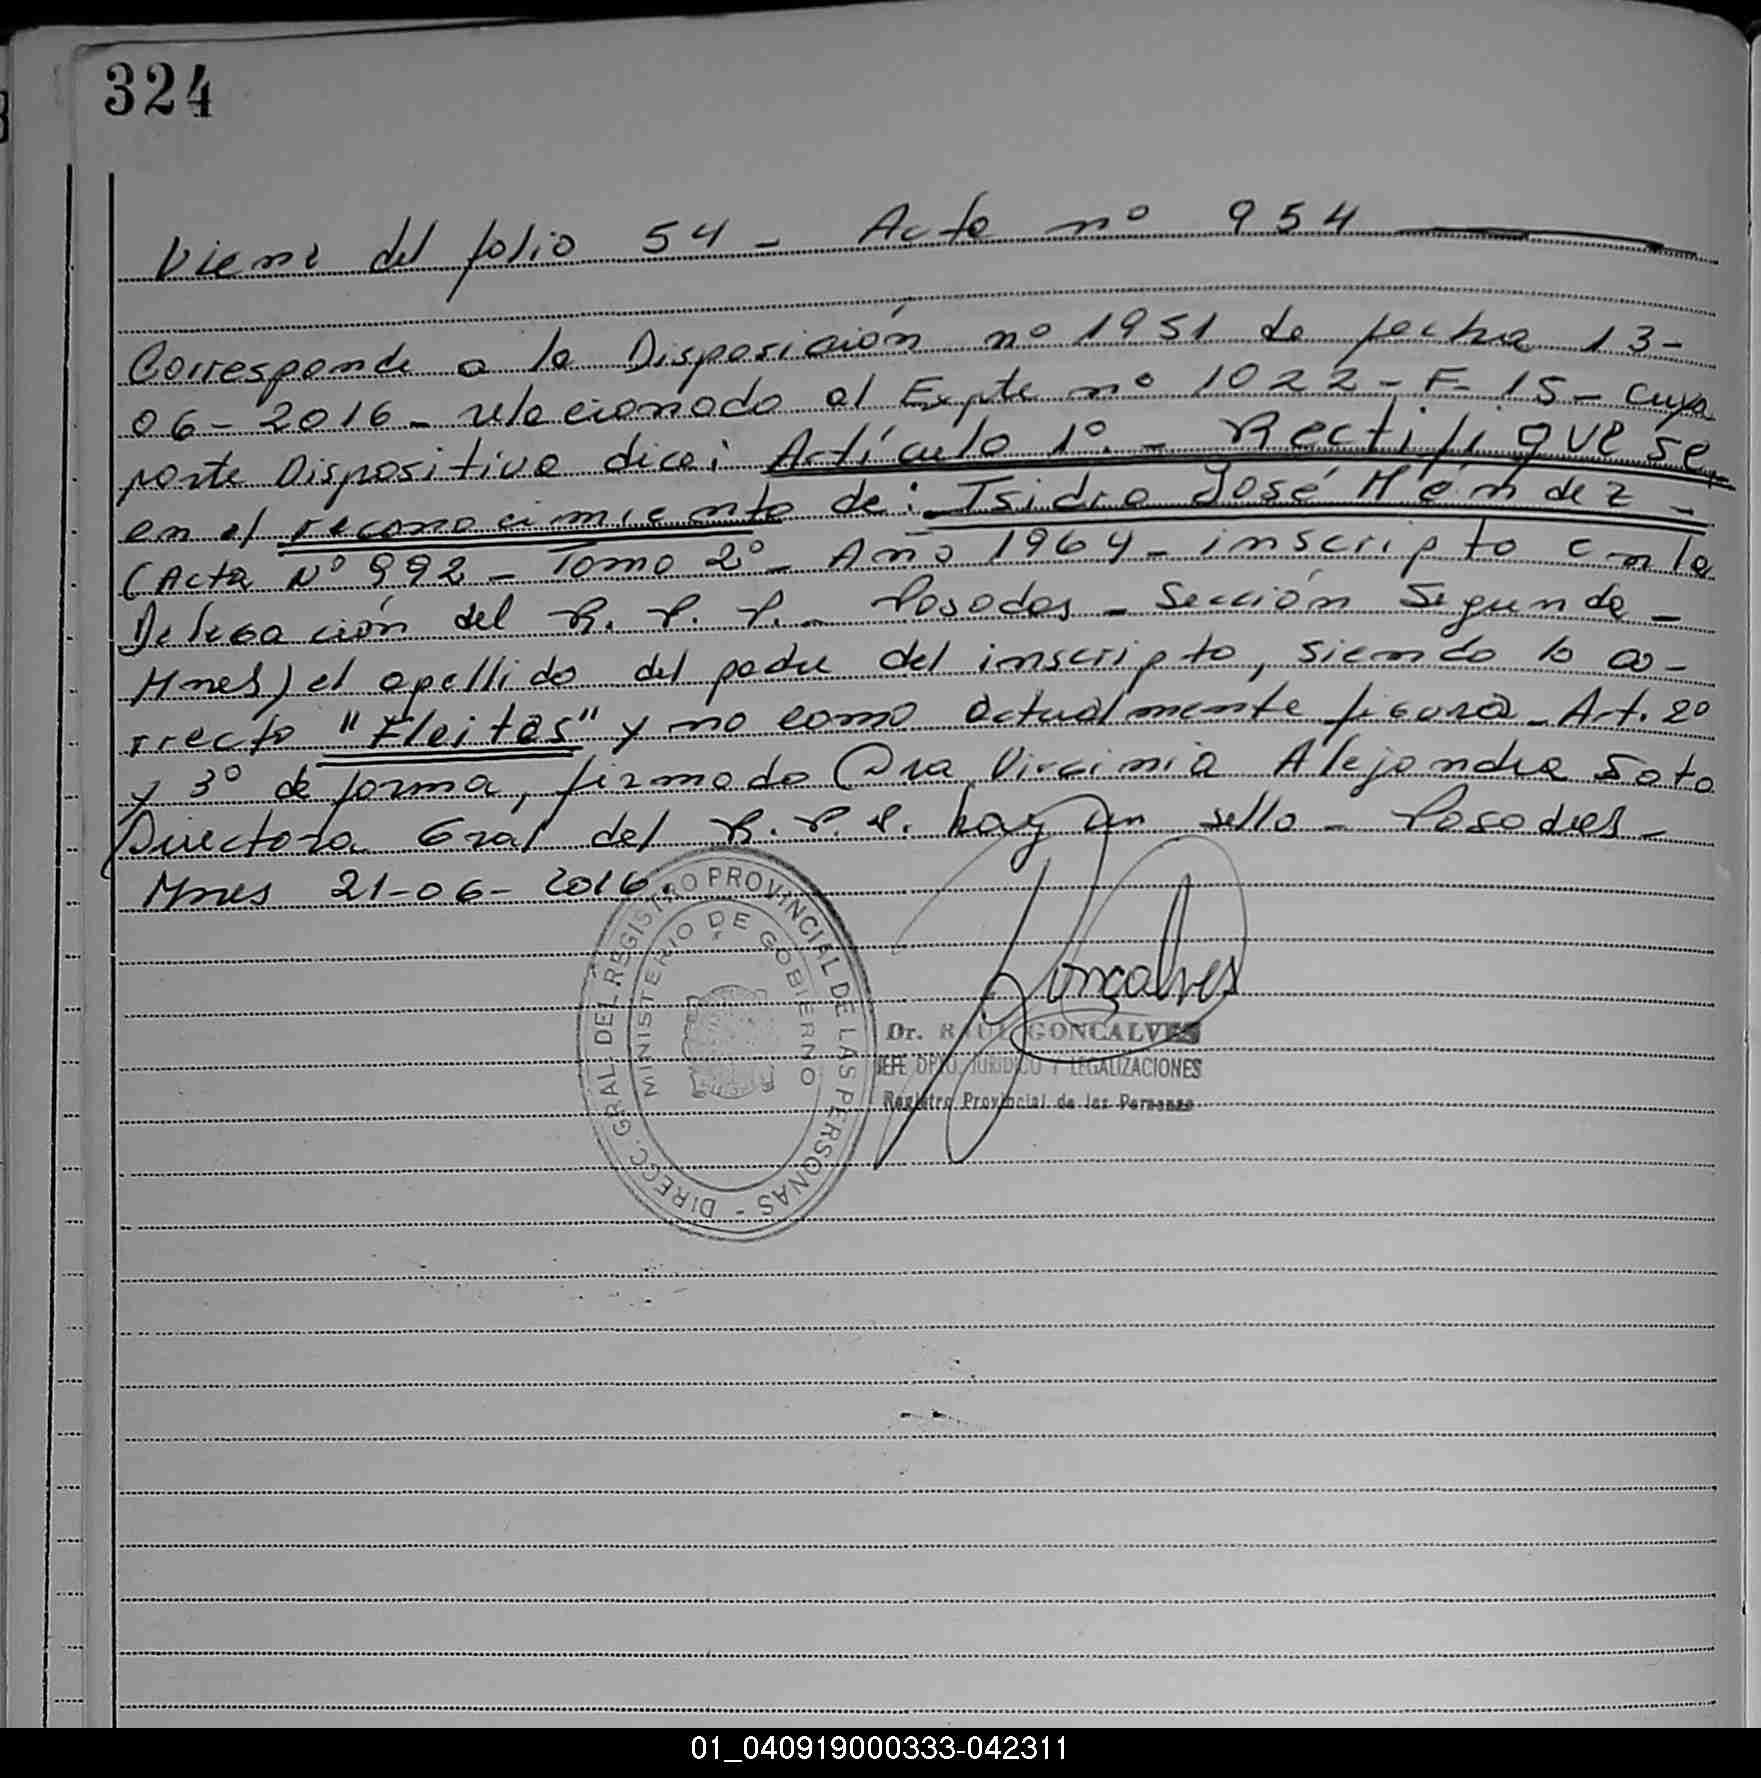 324
Viene del folio 54 - Acta nº 954
Corresponde a la Disposición nº 1951 de fecha 13-
06-2016- relacionado al Expte nº 1022-F-15- cuya
parte Dispositiva dice: Artículo 1º.- Rectifiquese,
en el reconocimiento de: Isidro José Méndez -
(Acta Nº 992 - Tomo 2º - Año 1964 - inscripto en la
Delegación del R. P. P. - Posadas - Sección Segunda -
Mnes) el apellido del padre del inscripto, siendo lo co-
rrecto "Fleitas" y no como actualmente figura - Art. 2º
y 3º de forma, firmado Dra Virginia Alejandra Soto
Directora Gral del R. P. P. hay un sello - Posadas -
Mnes 21-06-2016.
DIRECC. GRAL. DEL REGISTRO PROVINCIAL DE LAS PERSONAS -
MINISTERIO DE GOBIERNO
Gonçalves
Dr. RAUL GONCALVES
JEFE DPTO. JURIDICO Y LEGALIZACIONES
Registro Provincial de las Personas
01_040919000333-042311